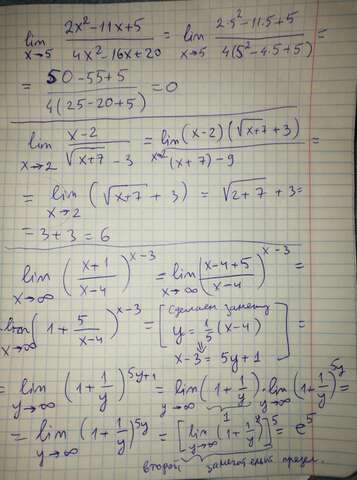 lim x→5 (2x² - 11x + 5)/(4x² - 16x + 20) = lim x→5 (2·5² - 11·5 + 5)/(4(5² - 4·5 + 5)) =
= (50 - 55 + 5)/(4(25 - 20 + 5)) = 0
lim x→2 (x - 2)/(√(x+7) - 3) = lim x→2 ((x-2)(√(x+7) + 3))/((x+7) - 9) =
= lim x→2 (√(x+7) + 3) = √(2+7) + 3 =
= 3 + 3 = 6
lim x→∞ ((x+1)/(x-4))^(x-3) = lim x→∞ ((x-4+5)/(x-4))^(x-3) =
= lim x→∞ (1 + 5/(x-4))^(x-3) = [сделаем замену y = 1/5 (x-4) ⇓ x-3 = 5y+1] =
= lim y→∞ (1 + 1/y)^(5y+1) = lim y→∞ (1 + 1/y) · lim y→∞ (1 + 1/y)^(5y) =
= lim y→∞ (1 + 1/y)^(5y) = [lim y→∞ (1 + 1/y)^y]^5 = e^5
второй замечательный предел.